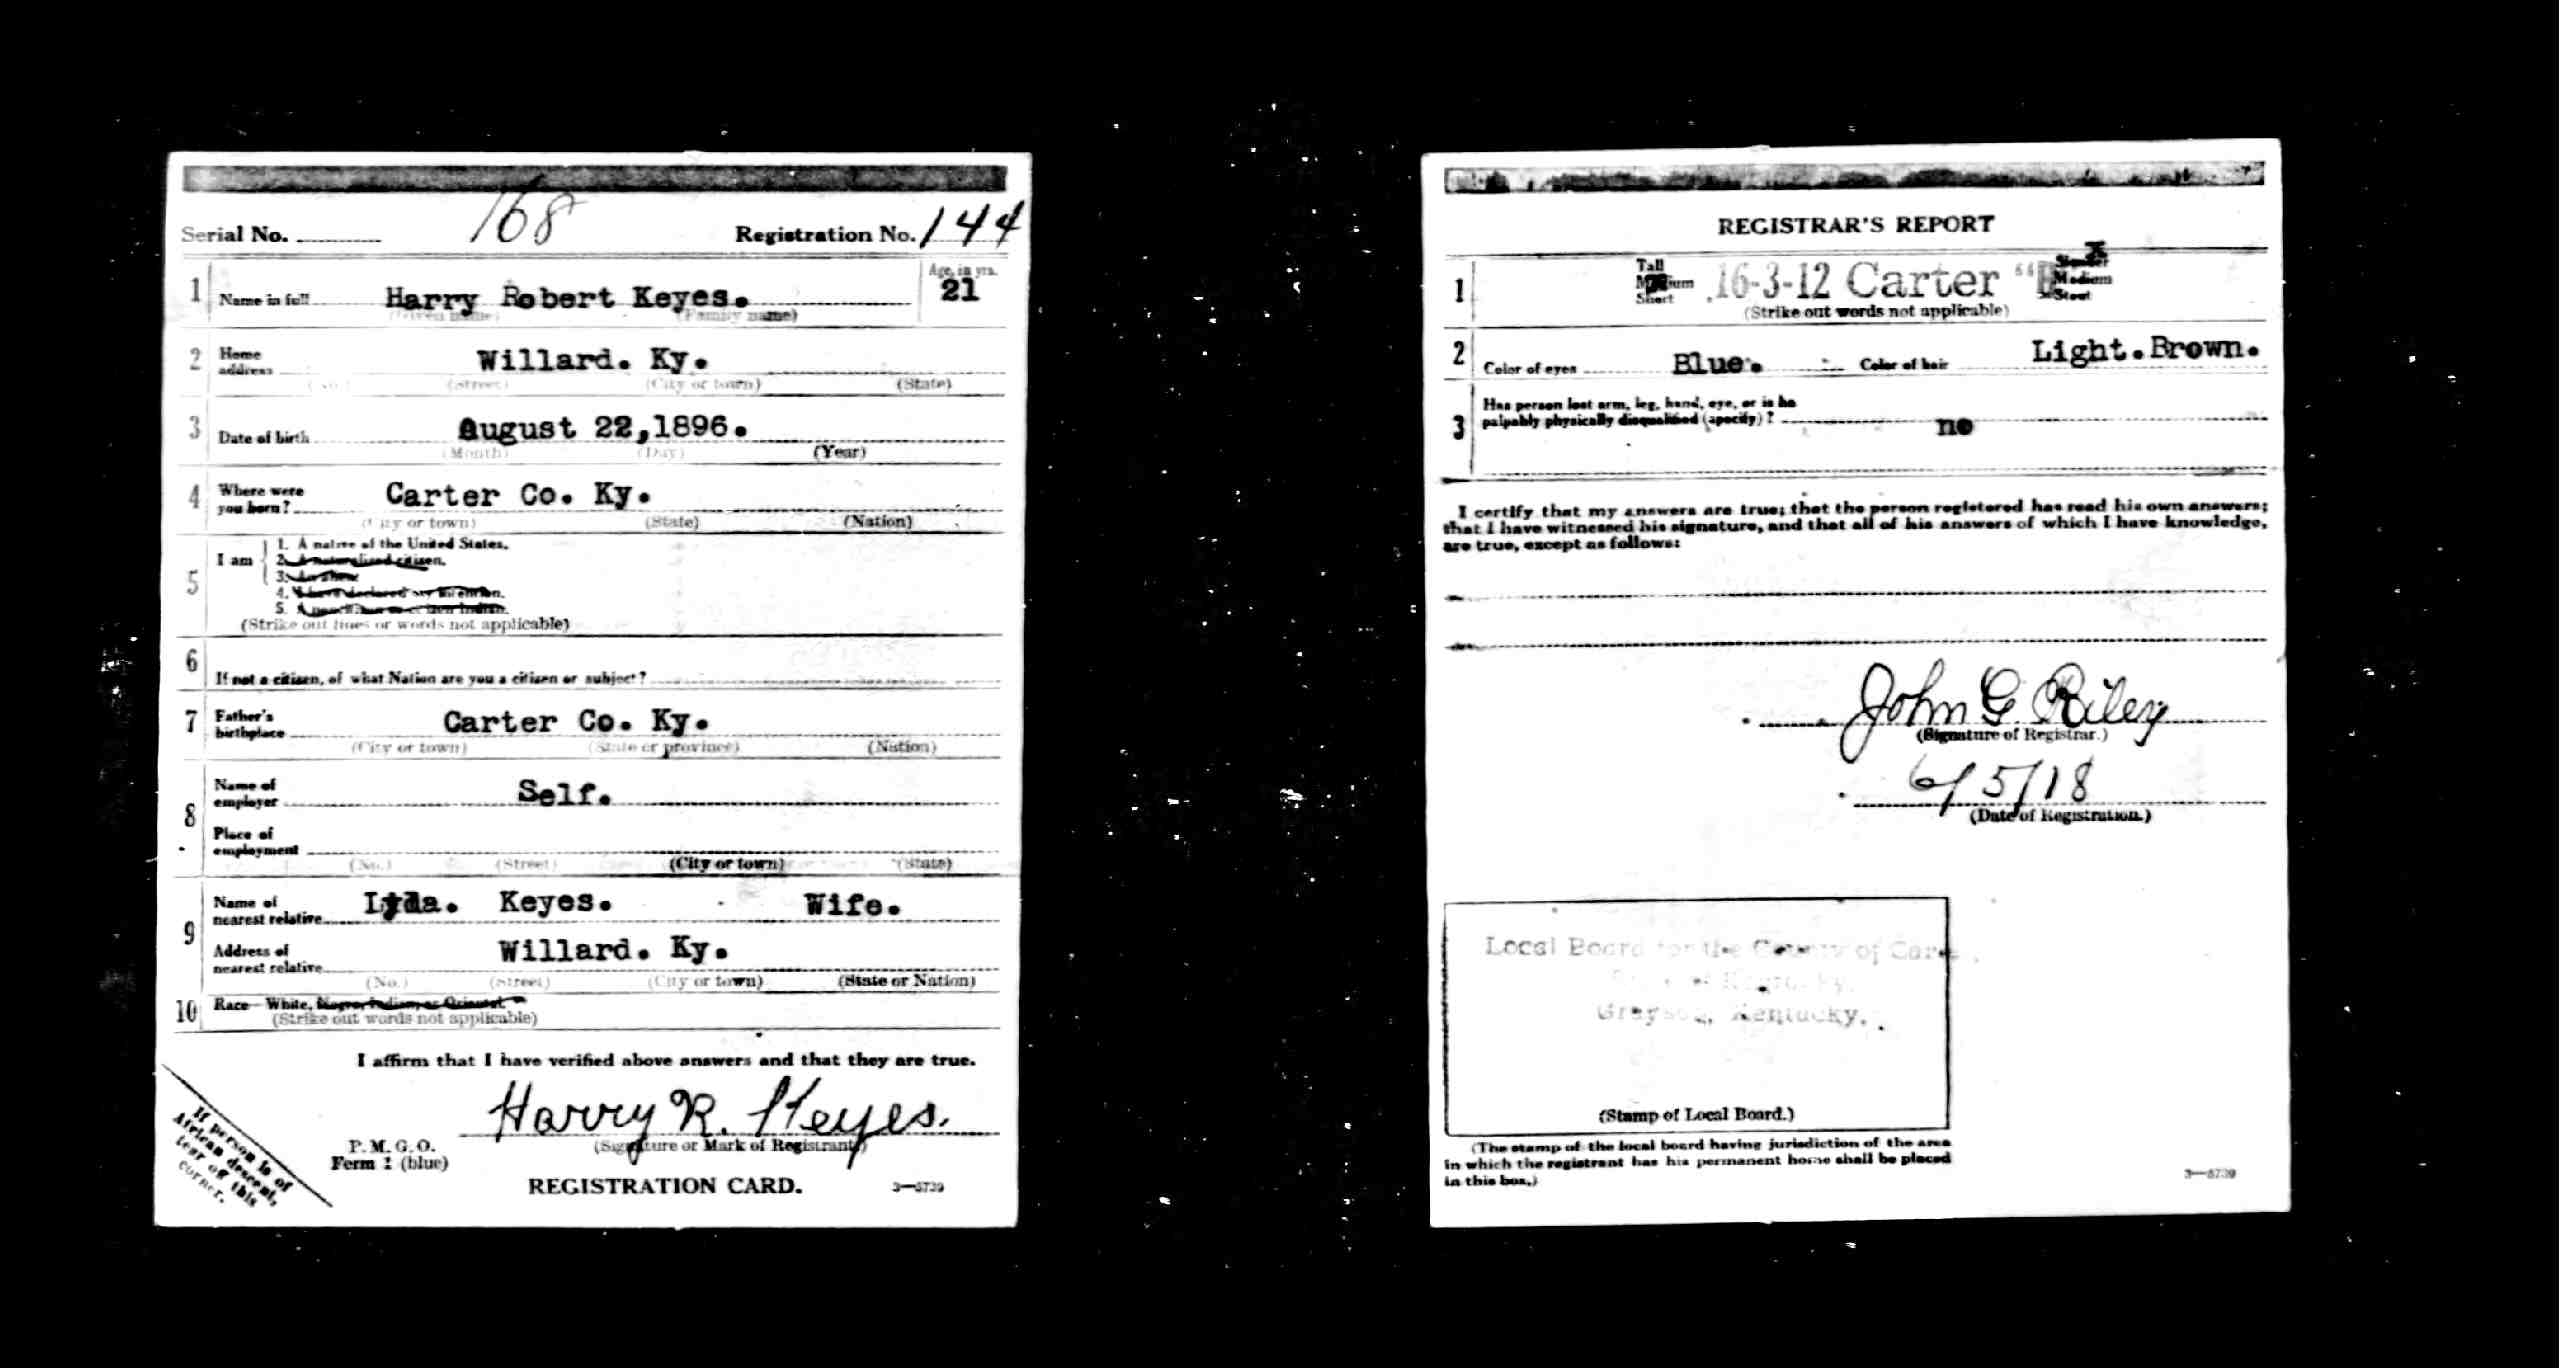 Serial No. 168 Registration No. 144
1 Name in full Harry Robert Keyes. Age, in yrs. 21
(Given name) (Family name)
2 Home address Willard. Ky.
(No.) (Street) (City or town) (State)
3 Date of birth August 22,1896.
(Month) (Day) (Year)
4 Where were you born? Carter Co. Ky.
(City or town) (State) (Nation)
5 I am
1. A native of the United States.
2. A naturalized citizen.
3. An alien.
4. I have declared my intention.
5. A noncitizen or citizen Indian.
(Strike out lines or words not applicable)
6 If not a citizen, of what Nation are you a citizen or subject?
7 Father's birthplace Carter Co. Ky.
(City or town) (State or province) (Nation)
8 Name of employer Self.
Place of employment
(No.) (Street) (City or town) (State)
9 Name of nearest relative Keyes. Wife.
Address of nearest relative Willard. Ky.
(No.) (Street) (City or town) (State or Nation)
10 Race—White, Negro, Indian, or Oriental.
(Strike out words not applicable)
I affirm that I have verified above answers and that they are true.
Harry R. Keyes.
(Signature or Mark of Registrant)
P. M. G. O.
Form 1 (blue)
REGISTRATION CARD. 3—5739
If person is of
African descent,
tear off this
corner.
REGISTRAR'S REPORT
1 Tall Medium Short 16-3-12 Carter Slender Medium Stout
(Strike out words not applicable)
2 Color of eyes Blue. Color of hair Light.Brown.
3 Has person lost arm, leg, hand, eye, or is he
palpably physically disqualified (specify)? no
I certify that my answers are true; that the person registered has read his own answers;
that I have witnessed his signature, and that all of his answers of which I have knowledge,
are true, except as follows:
John G. Riley
(Signature of Registrar.)
6/5/18
(Date of Registration.)
Local Board for the County of
Kentucky.
Grayson, Kentucky.
(Stamp of Local Board.)
(The stamp of the local board having jurisdiction of the area
in which the registrant has his permanent home shall be placed
in this box.)
3—5739